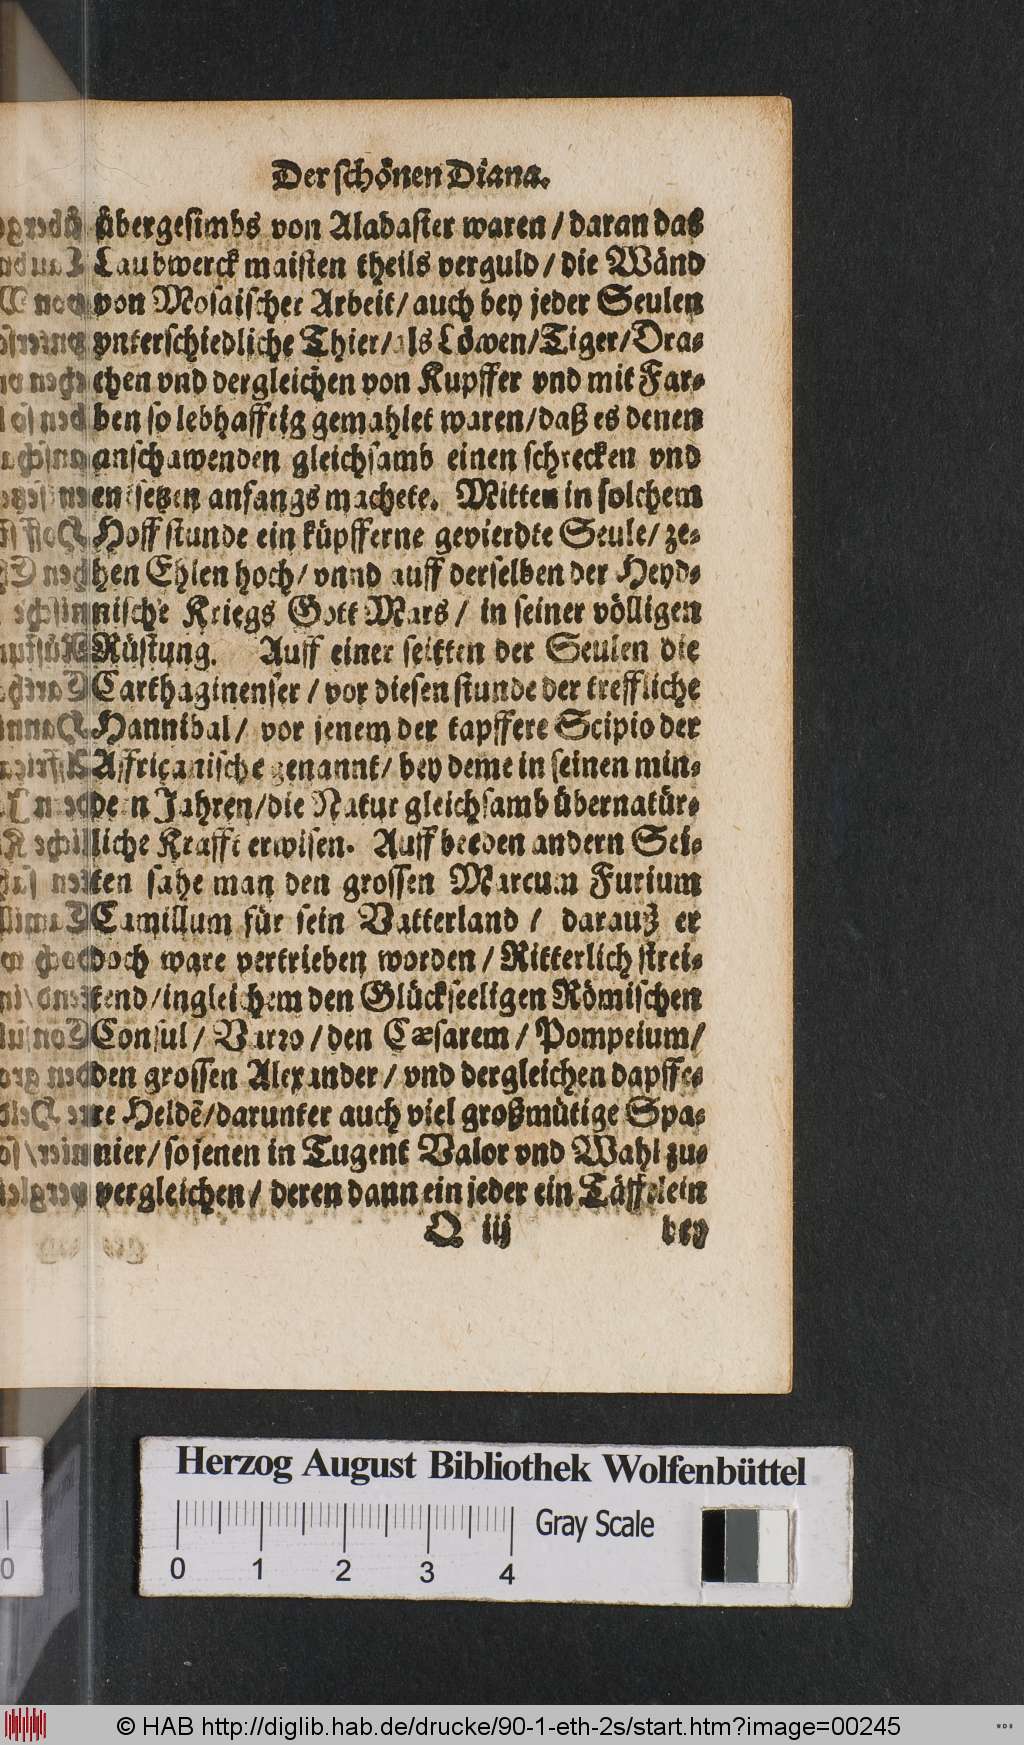 Der schönen Diana.
übergesimbs von Alabaster waren / daran das
Laubwerck maisten theils verguld / die Wänd
von Mosaischer Arbeit / auch bey jeder Seulen
vnterschiedliche Thier / als Löwen / Tiger / Dra-
chen vnd dergleichen von Kupffer vnd mit Far-
ben so lebhafftig gemahlet waren / daß es denen
anschawenden gleichsamb einen schrecken vnd
entsetzen anfangs machete. Mitten in solchem
Hoff stunde ein küpfferne gevierdte Seule / ze-
hen Ehlen hoch / vnnd auff derselben der Heyd-
nische Kriegs Gott Mars / in seiner völligen
Rüstung. Auff einer seitten der Seulen die
Carthaginenser / vor diesen stunde der treffliche
Hannibal / vor jenem der tapffere Scipio der
Affricanische genannt / bey deme in seinen min-
dern Jahren / die Natur gleichsamb übernatür-
liche Krafft erwisen. Auff beeden andern Sei-
ten sahe man den grossen Marcum Furium
Camillum für sein Vatterland / darauß er
doch ware vertrieben worden / Ritterlich strei-
tend / ingleichem den Glückseeligen Römischen
Consul / Varro / den Cæsarem / Pompeium /
den grossen Alexander / vnd dergleichen dapffe-
re Heldẽ / darunter auch viel großmütige Spa-
nier / so jenen in Tugent Valor vnd Wahl zu-
vergleichen / deren dann ein jeder ein Täffelein
Q iij bey
Herzog August Bibliothek Wolfenbüttel
Gray Scale
0 1 2 3 4
© HAB http://diglib.hab.de/drucke/90-1-eth-2s/start.htm?image=00245